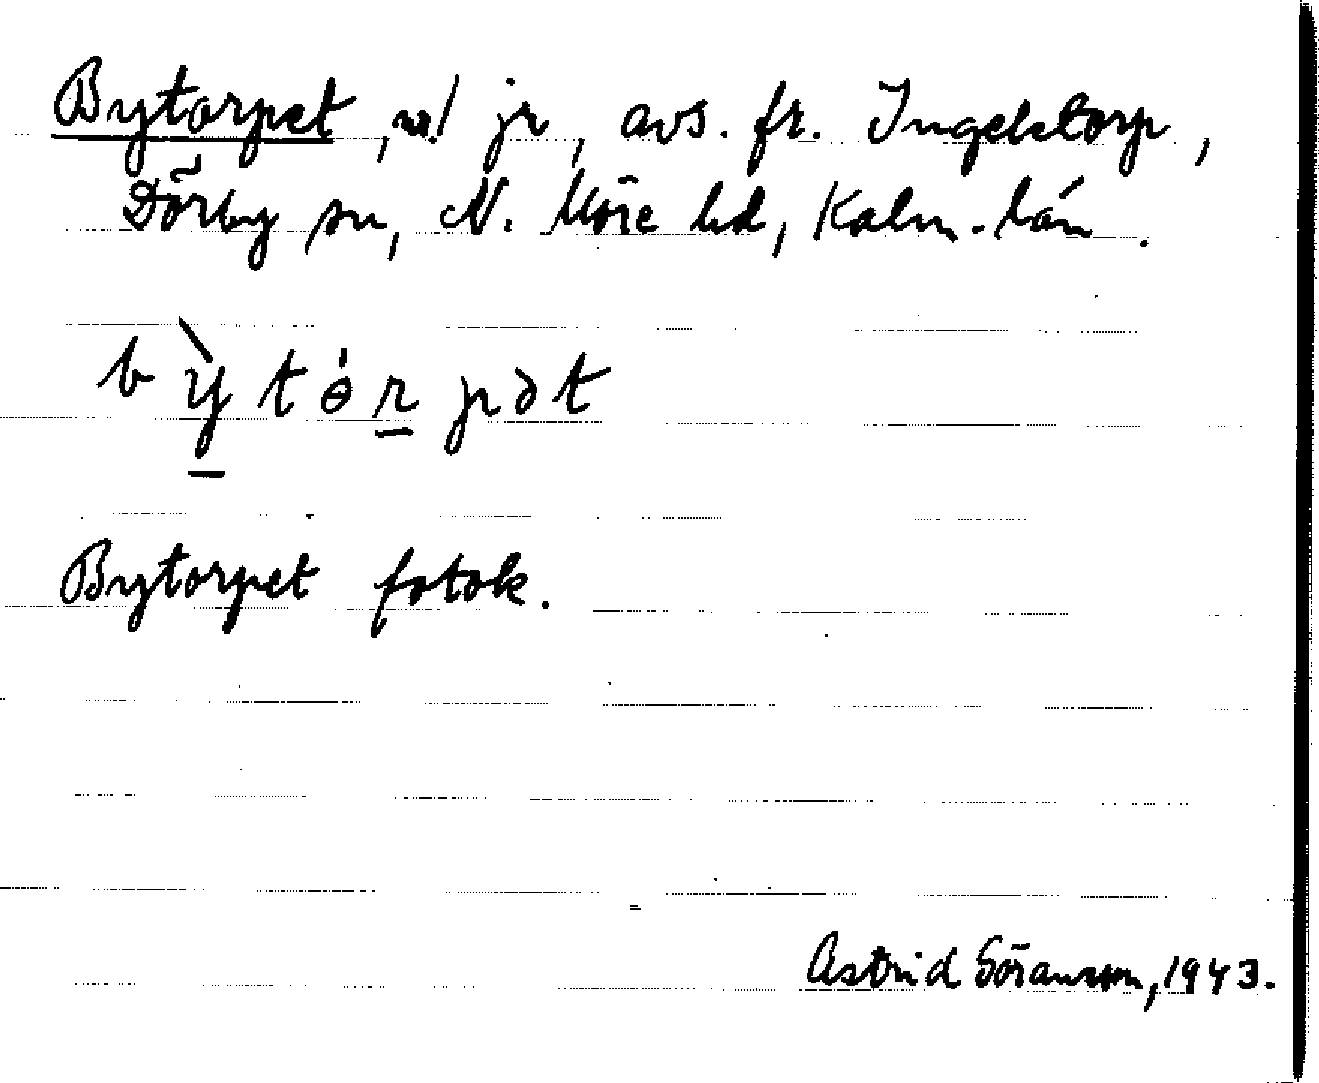 Bytorpet, u/ jr, avs. fr. Ingelstorp,
Dörby sn, N. Möre hd, Kalm. län.
bỳtɵ́rpət
Bytorpet fotok.
Astrid Göransson, 1943.